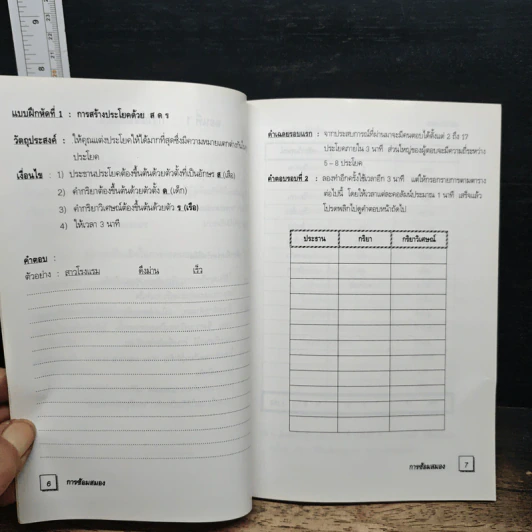 แบบฝึกหัดที่ 1 : การสร้างประโยคด้วย ส ด ร
วัตถุประสงค์ : ให้คุณแต่งประโยคให้ได้มากที่สุดซึ่งมีความหมายแตกต่างกันใน
ประโยค
เงื่อนไข 1) ประธานประโยคต้องขึ้นต้นด้วยตัวตั้งที่เป็นอักษร ส (เสือ)
2) คำกริยาต้องขึ้นต้นด้วยตัวตั้ง ด (เด็ก)
3) คำกริยาวิเศษณ์ต้องขึ้นต้นด้วยตัว ร (เรือ)
4) ให้เวลา 3 นาที
คำตอบ :
ตัวอย่าง : สาวโรงแรม ดึงม่าน เร็ว
6 การซ้อมสมอง
คำเฉลยรอบแรก : จากประสบการณ์ที่ผ่านมาจะมีคนตอบได้ตั้งแต่ 2 ถึง 17
ประโยคภายใน 3 นาที ส่วนใหญ่ของผู้ตอบจะมีความถี่ระหว่าง
5 – 8 ประโยค
คำตอบรอบที่ 2 : ลองทำอีกครั้งใช้เวลาอีก 3 นาที แต่ให้กรอกรายการตามตาราง
ต่อไปนี้ โดยให้เวลาแต่ละคอลัมน์ประมาณ 1 นาที เสร็จแล้ว
โปรดพลิกไปดูคำตอบหน้าถัดไป
ประธาน กริยา กริยาวิเศษณ์
การซ้อมสมอง 7